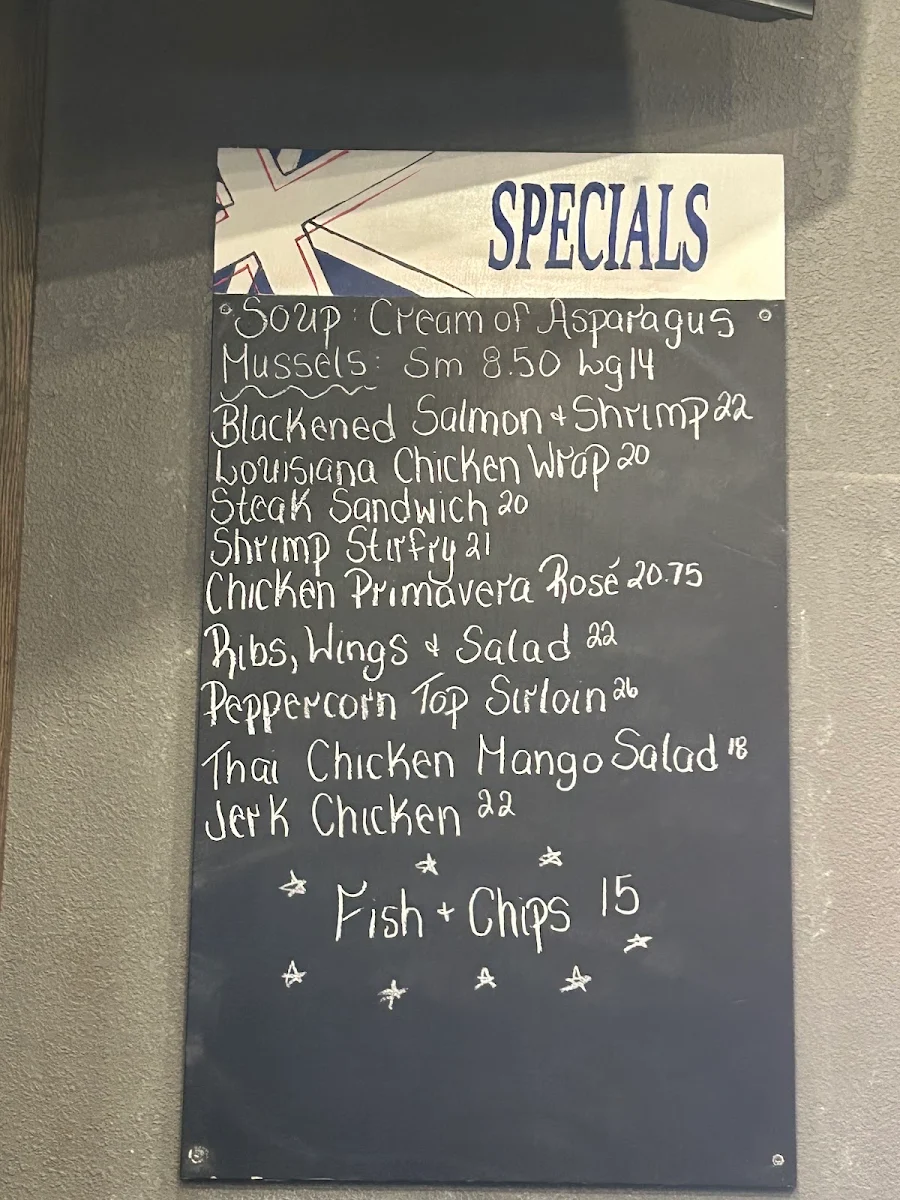 SPECIALS
Soup: Cream of Asparagus
Mussels: Sm 8.50 Lg 14
Blackened Salmon + Shrimp 22
Louisiana Chicken Wrap 20
Steak Sandwich 20
Shrimp Stirfry 21
Chicken Primavera Rosé 20.75
Ribs, Wings + Salad 22
Peppercorn Top Sirloin 26
Thai Chicken Mango Salad 18
Jerk Chicken 22
Fish + Chips 15